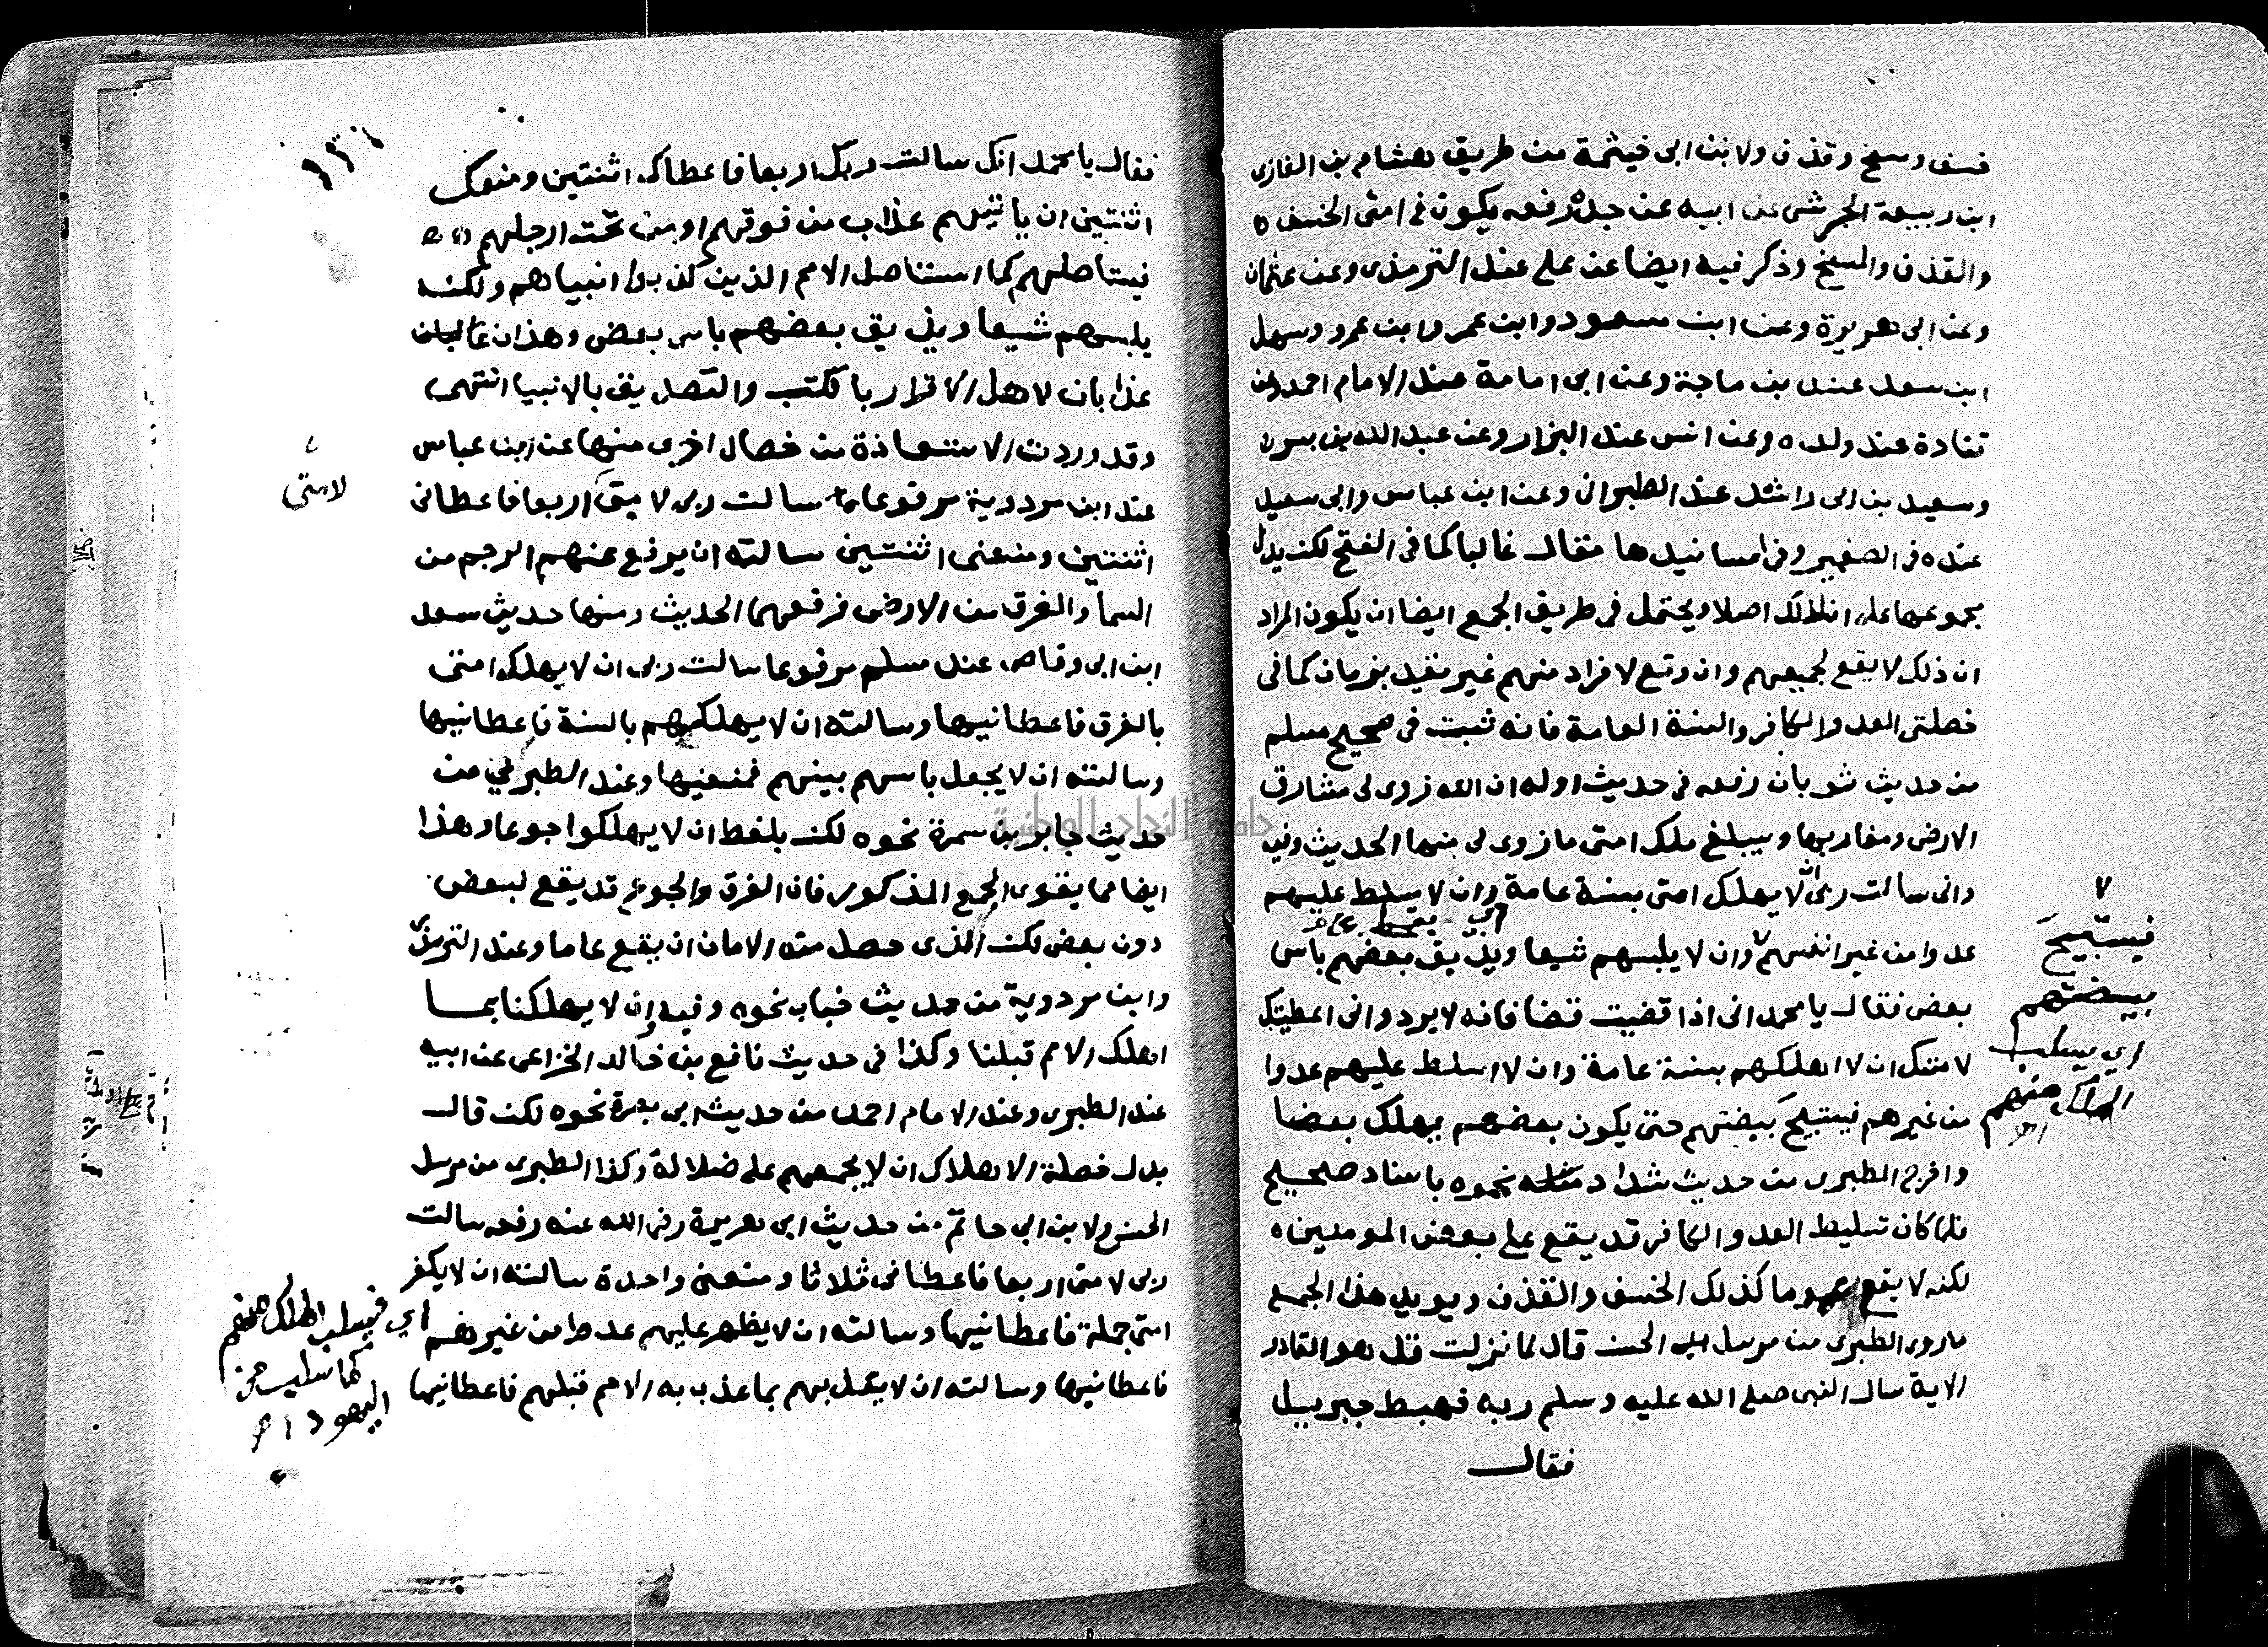 خسف ومسخ وقذف ولابن ابى خيثمة من طريق هشام بن الغازى
ابن ربيعة الجرشى عن ابيه عن جده رفعه يكون فى امتى الخسف
والقذف والمسخ وذكر فيه ايضا عن على عند الترمذى وعن عثمان
وعن ابى هريرة وعن ابن مسعود وابن عمر وابن عمرو وسهل
ابن سعد عند بن ماجة وعن ابى امامة عند الامام احمد وعن
قتادة عند ولده وعن انس عند البزار وعن عبد الله بن بسر
وسعيد بن ابى راشد عند الطبرانى وعن ابن عباس وابى سعيد
عنده فى الصغير وفى اسانيدها مقال غالبا كما فى الفتح لكن يدل
مجموعها على ان لذلك اصلا ويحتمل فى طريق الجمع ايضا ان يكون المراد
ان ذلك لا يقع لجميعهم وان وقع لافراد منهم غير مقيد بزمان كما فى
خصلتى العدو الكافر والسنة العامة فانه ثبت فى صحيح مسلم
من حديث ثوبان رفعه فى حديث اوله ان الله زوى لى مشارق
الارض ومغاربها وسيبلغ ملك امتى ما زوى لى منها الحديث وفيه
وانى سالت ربى ان لا يهلك امتى بسنة عامة وان لا يسلط عليهم
عدوا من غير انفسهم وان لا يلبسهم شيعا ويذيق بعضهم باس
بعض فقال يا محمد انى اذا قضيت قضا فانه لا يرد وانى اعطيتك
لامتك ان لا اهلكهم بسنة عامة وان لا اسلط عليهم عدوا
من غيرهم فيستبيح بيضتهم حتى يكون بعضهم يهلك بعضا
واخرج الطبرى من حديث شداد نحوه باسناد صحيح
فلما كان تسليط العدو الكافر قد يقع على بعض المومنين
لكنه لا يقع عموما كذلك الخسف والقذف ويويد هذا الجمع
ماروى الطبرى من مرسل الحسن قال لما نزلت قل هو القادر
الاية سال النبى صلى الله عليه وسلم ربه فهبط جبريل
فقال
٧
فيستبيح
بيضتهم
اي يسلب
الملك منهم
اهـ
١٣٦
فقال يا محمد انك سالت ربك اربعا فاعطاك اثنتين ومنعك
اثنتين ان ياتيهم عذاب من فوقهم او من تحت ارجلهم
فيستاصلهم كما استاصل الامم الذين كذبوا انبياهم ولكنه
يلبسهم شيعا ويذيق بعضهم باس بعض وهذان
عذابان لاهل الاقرار بالكتب والتصديق بالانبيا انتهى
وقد وردت الاستعاذة من خصال اخرى منها عن ابن عباس
عند ابن مردوية مرفوعا سالت ربى لامتى اربعا فاعطانى
اثنتين ومنعنى اثنتين سالته ان يرفع عنهم الرجم من
السما والغرق من الارض فرفعهما الحديث ومنها حديث سعد
ابن ابى وقاص عند مسلم مرفوعا سالت ربى ان لا يهلك امتى
بالغرق فاعطانيها وسالته ان لا يهلكهم بالسنة فاعطانيها
وسالته ان لا يجعل باسهم بينهم فمنعنيها وعند الطبرى من
حديث جابر بن سمرة نحوه لكن بلفظ ان لا يهلكوا جوعا وهذا
ايضا مما يقوى الجمع المذكور فان الغرق والجوع قد يقع لبعض
دون بعض لكن الذى حصل منه الامان ان يقع عاما وعند الترمذى
وابن مردوية من حديث خباب نحوه وفيه وان لا يهلكنا بما
اهلك الامم قبلنا وكذا فى حديث نافع بن خالد الخزاعى عن ابيه
عند الطبرى وعند الامام احمد من حديث ابى بصرة نحوه لكن قال
بدل خصلة الاهلاك ان لا يجمعهم على ضلالة وكذا الطبرى من مرسل
الحسن ولابن ابى حاتم من حديث ابى هريرة رضى الله عنه رفعه سالت
ربى لامتى اربعا فاعطانى ثلاثا ومنعنى واحدة سالته ان لا يكفر
امتى جملة فاعطانيها وسالته ان لا يظهر عليهم عدوا من غيرهم
فاعطانيها وسالته ان لا يعذبهم بما عذب به الامم قبلهم فاعطانيها
لامتى
اي فيسلب الملك منهم
كما سلب من
اليهود اهـ
جامعة النجاح الوطنية